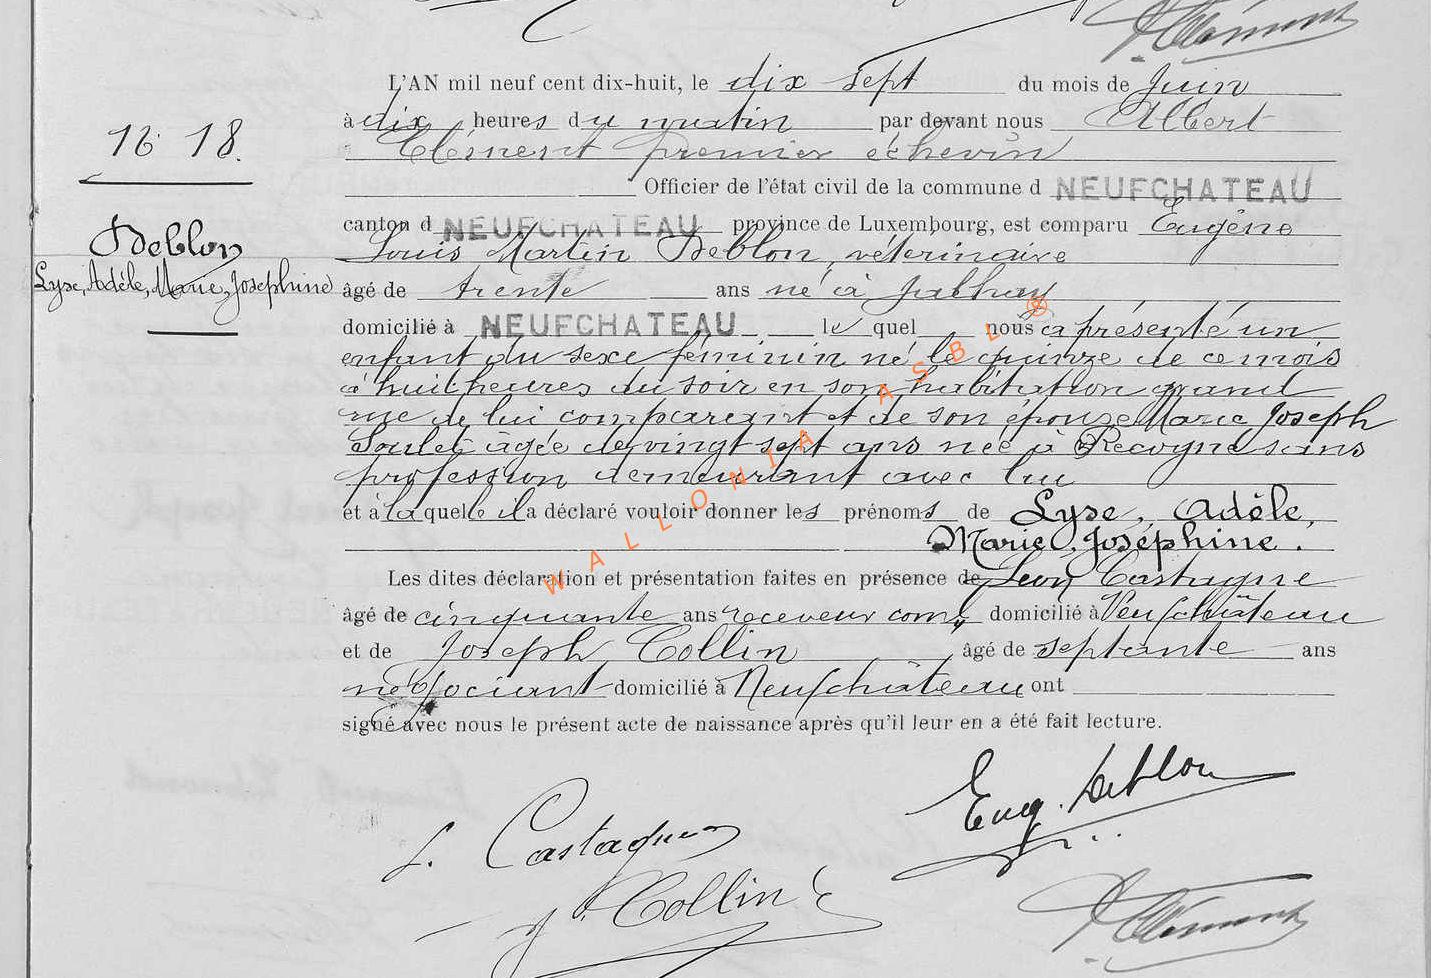 L'AN mil neuf cent dix-huit, le dix sept du mois de Juin
à dix heures du matin par devant nous Albert
Clément premier échevin
Officier de l'état civil de la commune d NEUFCHATEAU
canton d NEUFCHATEAU province de Luxembourg, est comparu Eugène
Louis Martin Deblon, vétérinaire
âgé de trente ans né à Jalhay
domicilié à NEUFCHATEAU le quel nous a présenté un
enfant du sexe féminin né le quinze de ce mois
à huit heures du soir en son habitation grand
rue de lui comparant et de son épouze Marie Joseph
Soulet agée de vingt sept ans née à Recogne sans
profession demeurant avec lui
et à laquelle il a déclaré vouloir donner les prénoms de Lyse, Adèle,
Marie, Joséphine.
Les dites déclaration et présentation faites en présence de Léon Castagne
âgé de cinquante ans receveur com, domicilié à Neufchâteau
et de Joseph Collin âgé de septante ans
négociant domicilié à Neufchâteau ont
signé avec nous le présent acte de naissance après qu'il leur en a été fait lecture.
18.
Deblon
Lyse, Adèle, Marie, Joséphine
Eug. Deblon
L. Castagne
J. Collin
Clément
WALLONIA ASBL ®